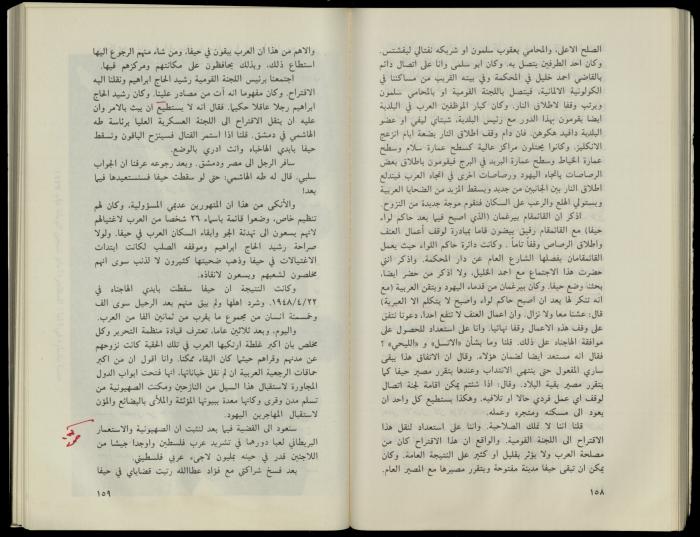 الصلح الاعلى، والمحامي يعقوب سلمون او شريكه نفتالي ليفشتس.
وكان احد الطرفين يتصل به. وكان ابو سلمى وانا على اتصال دائم
بالقاضي احمد خليل في المحكمة وفي بيته القريب من مساكننا في
الكولونية الالمانية، فيتصل باللجنة القومية او بالمحامي سلمون
ويرتب وقفا لاطلاق النار. وكان كبار الموظفين العرب في البلدية
ايضا يقومون بهذا الدور مع رئيس البلدية، شبتاي ليفي او عضو
البلدية دافيد هكوهن. فان دام وقف اطلاق النار بضعة ايام انزعج
الانكليز. وكانوا يحتلون مراكز عالية كسطح عمارة سلام وسطح
عمارة الخياط وسطح عمارة البريد في البرج فيقومون باطلاق بعض
الرصاصات باتجاه اليهود ورصاصات اخرى في اتجاه العرب فيندلع
اطلاق النار بين الجانبين من جديد ويسقط المزيد من الضحايا العربية
ويستولي الهلع والرعب على السكان فتقوم موجة جديدة من النزوح.
اذكر ان القائمقام بيرغمان (الذي اصبح فيما بعد حاكم لواء
حيفا) مع القائمقام رفيق بيضون قاما بمبادرة لوقف أعمال العنف
واطلاق الرصاص وقفا تاماً. وكانت دائرة حاكم اللواء حيث يعمل
القائمقامان يفصلها الشارع العام عن دار المحكمة. واذكر انني
حضرت هذا الاجتماع مع احمد الخليل، ولا اذكر من حضر ايضا،
بحث وضع حيفا. وكان بيرغمان من قدماء اليهود ويتقن العربية (مع
انه تنكر لها بعد ان أصبح حاكم لواء واصبح لا يتكلم الا العبرية)
قال: عشنا معا ولا نزال. وان اعمال العنف لا تنفع احدا، دعونا نتفق
على وقف هذه الاعمال وقفا نهائيا. وانا على استعداد للحصول على
موافقة الهاجناه على ذلك. قلنا وما بشأن «الاتسل» و«الليحي»؟
فقال انه مستعد ايضا لضمان هؤلاء. وقال ان الاتفاق هذا يبقى
ساري المفعول حتى ينتهي الانتداب وعندها يتقرر مصير حيفا كما
يتقرر مصير بقية البلاد. وقال: اذا شئتم يمكن اقامة لجنة اتصال
لوقف اي عمل فردي حالا او تلافيه. وهكذا يستطيع كل واحد ان
يعود الى مسكنه ومتجره وعمله.
قلنا اننا لا نملك الصلاحية. واننا على استعداد لنقل هذا
الاقتراح الى اللجنة القومية. والواقع ان هذا الاقتراح كان من
مصلحة العرب ولا يؤثر بقليل او كثير على النتيجة العامة. وكان
يمكن ان تبقى حيفا مدينة مفتوحة ويتقرر مصيرها مع المصير العام.
١٥٨
والاهم من هذا ان العرب يبقون في حيفا، ومن شاء منهم الرجوع اليها
استطاع ذلك، وبذلك يحافظون على مكانتهم ومركزهم فيها.
اجتمعنا برئيس اللجنة القومية رشيد الحاج ابراهيم ونقلنا اليه
الاقتراح. وكان مفهوما انه أت من مصادر علينا. وكان رشيد الحاج
ابراهيم رجلا عاقلا حكيما. فقال انه لا يستطيع ان يبث بالامر وان
عليه ان ينقل الاقتراح الى اللجنة العسكرية العليا برئاسة طه
الهاشمي في دمشق. قلنا اذا استمر القتال فسينزح الباقون وتسقط
حيفا بايدي الهاجناه وانت ادري بالوضع.
سافر الرجل الى مصر ودمشق. وبعد رجوعه عرفنا ان الجواب
سلبي. قال له طه الهاشمي: حتى لو سقطت حيفا فسنستعيدها فيما
بعد!
والأنكى من هذا ان المتهورين عديمي المسؤولية، وكان لهم
تنظيم خاص، وضعوا قائمة باسماء ٢٦ شخصا من العرب لاغتيالهم
لانهم يسعون الى تهدئة الجو وابقاء السكان العرب في حيفا. ولولا
صراحة رشيد الحاج ابراهيم وموقفه الصلب لكانت ابتدات
الاغتيالات في حيفا وذهب ضحيتها كثيرون لا لذنب سوى انهم
مخلصون لشعبهم ويسعون لانقاذه.
وكانت النتيجة ان حيفا سقطت بايدي الهاجناه في
١٩٤٨/٤/٢٢. وشرد اهلها ولم يبق منهم بعد الرحيل سوى الف
وخمسمئة انسان من مجموع ما يقرب من ثمانين الفا من العرب.
واليوم، وبعد ثلاثين عاما، تعترف قيادة منظمة التحرير وكل
مخلص بان اكبر غلطة ارتكبها العرب في تلك الحقبة كانت نزوحهم
عن مدنهم وقراهم حيثما كان البقاء ممكنا. وانا اقول ان من اكبر
حماقات الرجعية العربية ان لم نقل خياناتها، انها فتحت ابواب الدول
المجاورة لاستقبال هذا السيل من النازحين ومكنت الصهيونية من
تسلم مدن وقرى وكانها معدة ببيوتها المؤثثة والملأى بالبضائع والمؤن
لاستقبال المهاجرين اليهود.
سنعود الى القضية فيما بعد لنثبت ان الصهيونية والاستعمار
البريطاني لعبا دورهما في تشريد عرب فلسطين واوجدا جيشا من
اللاجئين قدر في حينه بمليون لاجيء عربي فلسطيني.
بعد فسخ شراكتي مع فؤاد عطاالله رتبت قضاياي في حيفا
١٥٩